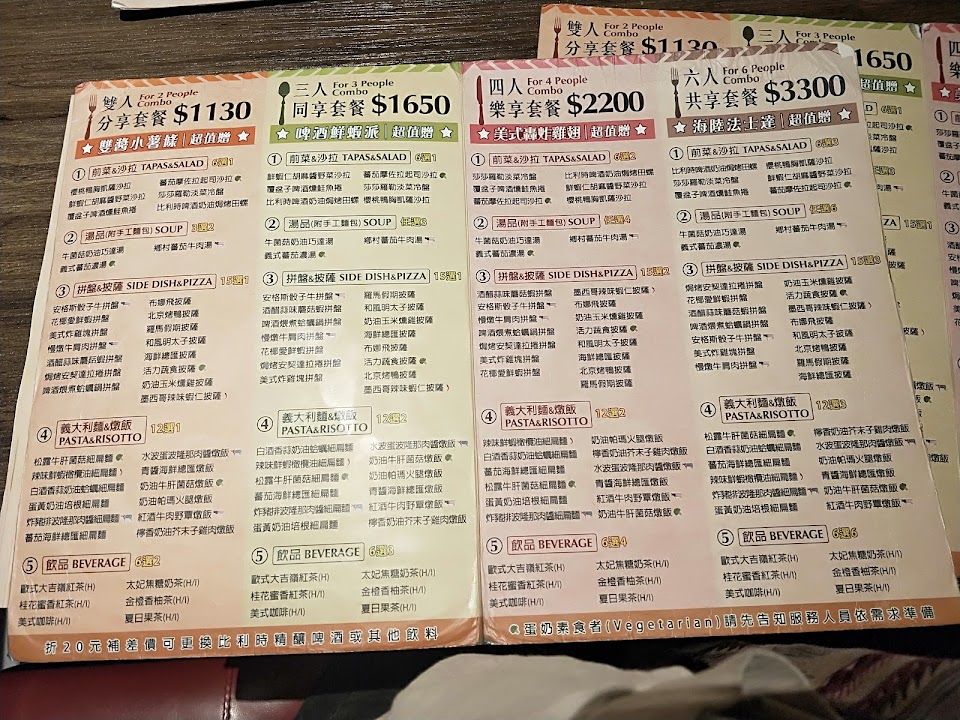 雙人 For 2 People Combo
分享套餐 $1130
雙醬小薯條 超值贈
1 前菜&沙拉 TAPAS&SALAD 6選1
櫻桃鴨胸凱薩沙拉 蕃茄摩佐拉起司沙拉
鮮蝦仁胡麻醬野菜沙拉 莎莎羅勒淡菜冷盤
覆盆子啤酒燻鮭魚捲 比利時啤酒奶油焗烤田螺
2 湯品(附手工麵包) SOUP 3選2
牛菌菇奶油巧達湯 鄉村蕃茄牛肉湯
義式蕃茄濃湯
3 拼盤&披薩 SIDE DISH&PIZZA 15選1
安格斯骰子牛拼盤 布娜飛披薩
花椰愛鮮蝦拼盤 北京烤鴨披薩
美式炸雞塊拼盤 羅馬假期披薩
慢燉牛肩肉拼盤 海鮮總匯披薩
酒醋蒜味蘑菇蝦拼盤 活力蔬食披薩
焗烤安契達拉捲拼盤 奶油玉米燻雞披薩
啤酒煨煮蛤蠣鍋拼盤 墨西哥辣味蝦仁披薩
4 義大利麵&燉飯 PASTA&RISOTTO 12選1
松露牛肝菌菇細扁麵 水波蛋波隆那肉醬燉飯
辣味鮮蝦橄欖油細扁麵 青醬海鮮總匯燉飯
白酒香蒜奶油蛤蠣細扁麵 奶油牛肝菌菇燉飯
蛋黃奶油培根細扁麵 奶油帕瑪火腿燉飯
炸豬排波隆那肉醬細扁麵 紅酒牛肉野蕈燉飯
蕃茄海鮮總匯細扁麵 檸香奶油芥末子雞肉燉飯
5 飲品 BEVERAGE 6選2
歐式大吉嶺紅茶(H) 太妃焦糖奶茶(H/I)
桂花蜜香紅茶(H/I) 金橙香柚茶(H/I)
美式咖啡(H/I) 夏日果茶(H/I)
三人 For 3 People Combo
同享套餐 $1650
啤酒鮮蝦派 超值贈
1 前菜&沙拉 TAPAS&SALAD 6選1
鮮蝦仁胡麻醬野菜沙拉 蕃茄摩佐拉起司沙拉
莎莎羅勒淡菜冷盤 覆盆子啤酒燻鮭魚捲
比利時啤酒奶油焗烤田螺 櫻桃鴨胸凱薩沙拉
2 湯品(附手工麵包) SOUP 任選3
牛菌菇奶油巧達湯 鄉村蕃茄牛肉湯
義式蕃茄濃湯
3 拼盤&披薩 SIDE DISH&PIZZA 15選1
安格斯骰子牛拼盤 羅馬假期披薩
酒醋蒜味蘑菇蝦拼盤 和風明太子披薩
啤酒煨煮蛤蠣鍋拼盤 奶油玉米燻雞披薩
慢燉牛肩肉拼盤 海鮮總匯披薩
花椰愛鮮蝦拼盤 布娜飛披薩
焗烤安契達拉捲拼盤 活力蔬食披薩
美式炸雞塊拼盤 北京烤鴨披薩
墨西哥辣味蝦仁披薩
4 義大利麵&燉飯 PASTA&RISOTTO 12選2
白酒香蒜奶油蛤蠣細扁麵 水波蛋波隆那肉醬燉飯
辣味鮮蝦橄欖油細扁麵 奶油牛肝菌菇燉飯
松露牛肝菌菇細扁麵 青醬海鮮總匯燉飯
蕃茄海鮮總匯細扁麵 奶油帕瑪火腿燉飯
蛋黃奶油培根細扁麵 紅酒牛肉野蕈燉飯
炸豬排波隆那肉醬細扁麵 檸香奶油芥末子雞肉燉飯
5 飲品 BEVERAGE 6選3
歐式大吉嶺紅茶(H) 太妃焦糖奶茶(H/I)
桂花蜜香紅茶(H/I) 金橙香柚茶(H/I)
美式咖啡(H/I) 夏日果茶(H/I)
折20元補差價可更換比利時精釀啤酒或其他飲料
四人 For 4 People Combo
樂享套餐 $2200
美式轟炸雞翅 超值贈
1 前菜&沙拉 TAPAS&SALAD 6選2
莎莎羅勒淡菜冷盤 比利時啤酒奶油焗烤田螺
鮮蝦仁胡麻醬野菜沙拉 覆盆子啤酒燻鮭魚捲
蕃茄摩佐拉起司沙拉 櫻桃鴨胸凱薩沙拉
2 湯品(附手工麵包) SOUP 任選4
牛菌菇奶油巧達湯 鄉村蕃茄牛肉湯
義式蕃茄濃湯
3 拼盤&披薩 SIDE DISH&PIZZA 15選2
酒醋蒜味蘑菇蝦拼盤 墨西哥辣味蝦仁披薩
安格斯骰子牛拼盤 布娜飛披薩
慢燉牛肩肉拼盤 奶油玉米燻雞披薩
啤酒煨煮蛤蠣鍋拼盤 活力蔬食披薩
焗烤安契達拉捲拼盤 和風明太子披薩
美式炸雞塊拼盤 海鮮總匯披薩
花椰愛鮮蝦拼盤 北京烤鴨披薩
羅馬假期披薩
4 義大利麵&燉飯 PASTA&RISOTTO 12選2
辣味鮮蝦橄欖油細扁麵 奶油帕瑪火腿燉飯
白酒香蒜奶油蛤蠣細扁麵 檸香奶油芥末子雞肉燉飯
蕃茄海鮮總匯細扁麵 水波蛋波隆那肉醬燉飯
松露牛肝菌菇細扁麵 青醬海鮮總匯燉飯
蛋黃奶油培根細扁麵 紅酒牛肉野蕈燉飯
炸豬排波隆那肉醬細扁麵 奶油牛肝菌菇燉飯
5 飲品 BEVERAGE 6選4
歐式大吉嶺紅茶(H) 太妃焦糖奶茶(H/I)
桂花蜜香紅茶(H/I) 金橙香柚茶(H/I)
美式咖啡(H/I) 夏日果茶(H/I)
六人 For 6 People Combo
共享套餐 $3300
海陸法士達 超值贈
1 前菜&沙拉 TAPAS&SALAD 6選3
比利時啤酒奶油焗烤田螺 櫻桃鴨胸凱薩沙拉
莎莎羅勒淡菜冷盤 鮮蝦仁胡麻醬野菜沙拉
覆盆子啤酒燻鮭魚捲 蕃茄摩佐拉起司沙拉
2 湯品(附手工麵包) SOUP 任選6
牛菌菇奶油巧達湯 鄉村蕃茄牛肉湯
義式蕃茄濃湯
3 拼盤&披薩 SIDE DISH&PIZZA 15選3
焗烤安契達拉捲拼盤 奶油玉米燻雞披薩
花椰愛鮮蝦拼盤 活力蔬食披薩
酒醋蒜味蘑菇蝦拼盤 墨西哥辣味蝦仁披薩
啤酒煨煮蛤蠣鍋拼盤 布娜飛披薩
安格斯骰子牛拼盤 和風明太子披薩
美式炸雞塊拼盤 北京烤鴨披薩
慢燉牛肩肉拼盤 羅馬假期披薩
海鮮總匯披薩
4 義大利麵&燉飯 PASTA&RISOTTO 12選3
松露牛肝菌菇細扁麵 檸香奶油芥末子雞肉燉飯
白酒香蒜奶油蛤蠣細扁麵 水波蛋波隆那肉醬燉飯
蕃茄海鮮總匯細扁麵 奶油帕瑪火腿燉飯
辣味鮮蝦橄欖油細扁麵 青醬海鮮總匯燉飯
蛋黃奶油培根細扁麵 奶油牛肝菌菇燉飯
炸豬排波隆那肉醬細扁麵 紅酒牛肉野蕈燉飯
5 飲品 BEVERAGE 6選6
歐式大吉嶺紅茶(H) 太妃焦糖奶茶(H/I)
桂花蜜香紅茶(H/I) 金橙香柚茶(H/I)
美式咖啡(H/I) 夏日果茶(H/I)
蛋奶素食者(Vegetarian)請先告知服務人員依需求準備
雙人 For 2 People Combo
分享套餐 $1130
三人 For 3 People Combo
1650
超值贈